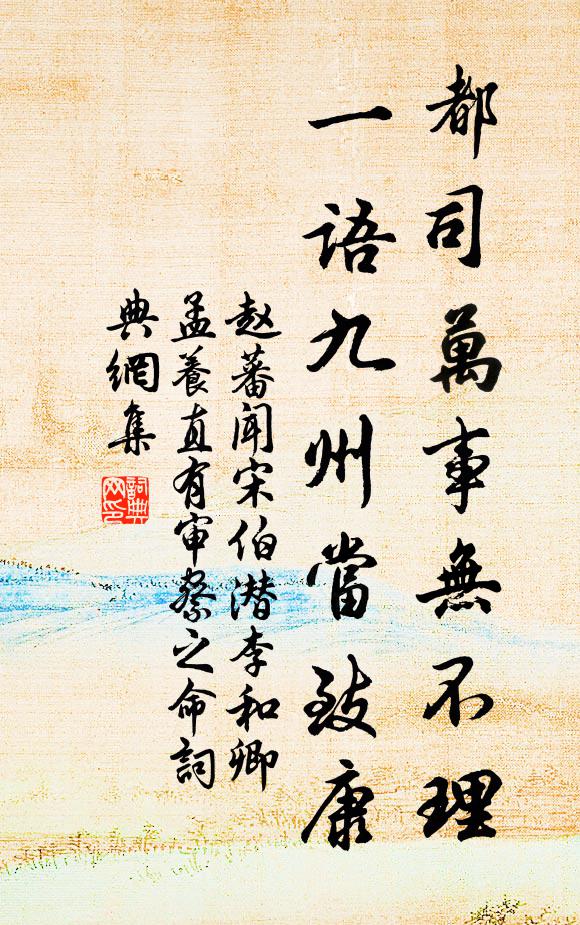 都司萬事無不理
一語九州當致康
赵蕃闻宋伯潜李和卿
孟養直有审察之命詞
典網集
詞典
网印